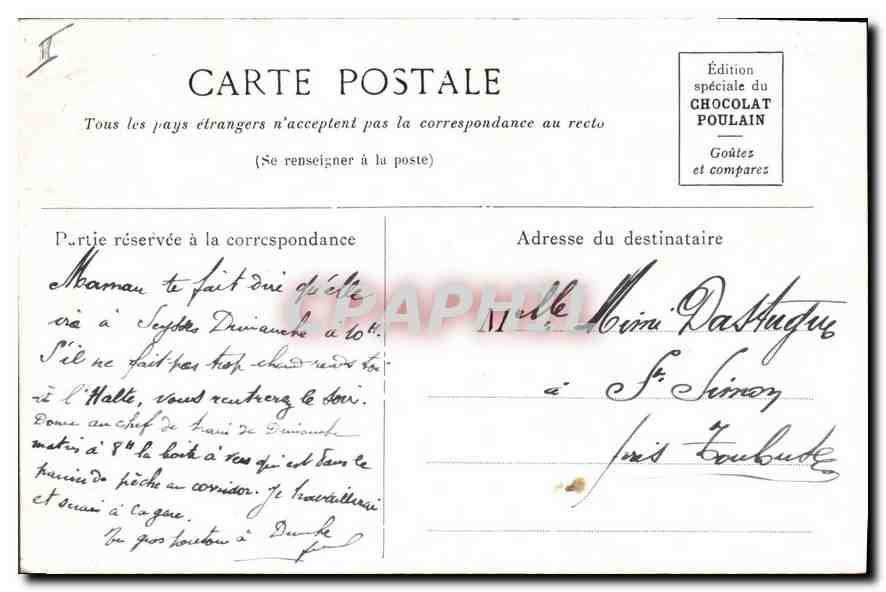 II
CARTE POSTALE
Tous les pays étrangers n'acceptent pas la correspondance au recto
(Se renseigner à la poste)
Édition
spéciale du
CHOCOLAT
POULAIN
Goûtez
et comparez
Partie réservée à la correspondance
Maman te fait dire qu'elle
ira à Seysses Dimanche à 10H.
S'il ne fait pas trop chaud rends toi
à l'Halte, vous rentrerez le soir.
Donne au chef de train de Dimanche
matin à 8H la boite à vers qui est dans le
panier de pêche au corridor. Je travaillerai
et serai à la gare.
Un gros bouton à
Adresse du destinataire
Melle Mimi Dastugue
à St Simon
près Toulouse
CPAPHIL